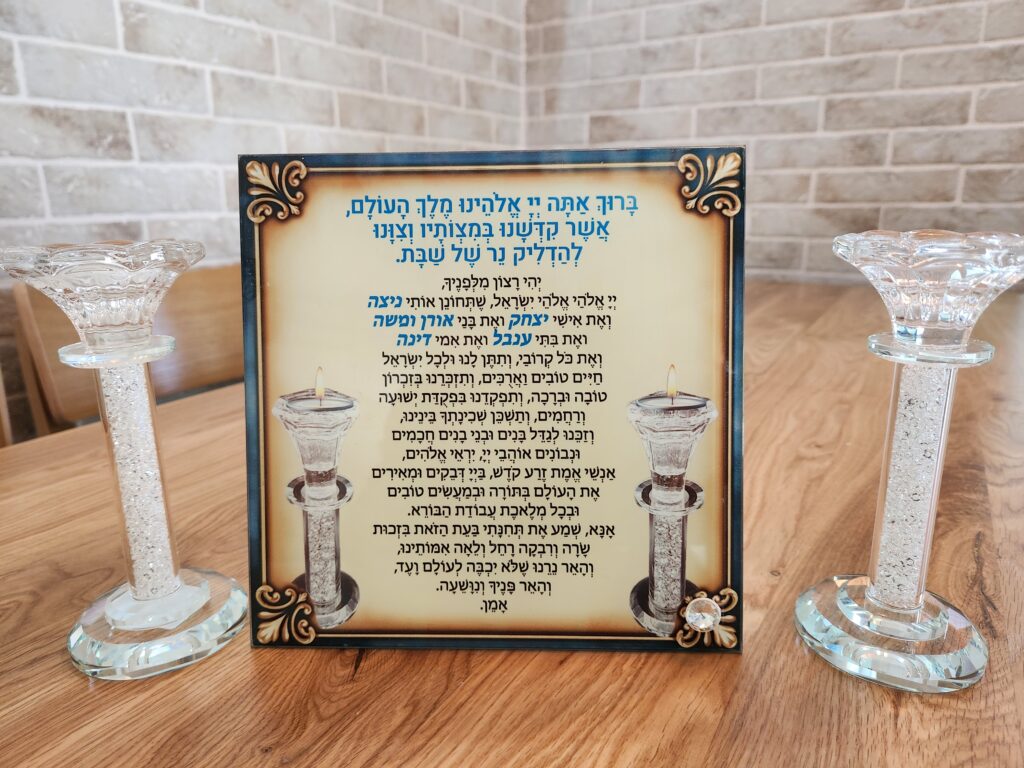 בָּרוּךְ אַתָּה יְיָ אֱלֹהֵינוּ מֶלֶךְ הָעוֹלָם,
אֲשֶׁר קִדְּשָׁנוּ בְּמִצְוֹתָיו וְצִוָּנוּ
לְהַדְלִיק נֵר שֶׁל שַׁבָּת.
יְהִי רָצוֹן מִלְּפָנֶיךָ,
יְיָ אֱלֹהַי אֱלֹהֵי יִשְׂרָאֵל, שֶׁתְּחוֹנֵן אוֹתִי ניצה
וְאֶת אִישִׁי יצחק וְאֶת בָּנַי אורן ומשה
וְאֶת בִּתִּי ענבל וְאֶת אִמִּי דינה
וְאֶת כֹּל קְרוֹבַי, וְתִתֶּן לָנוּ וּלְכָל יִשְׂרָאֵל
חַיִּים טוֹבִים וַאֲרֻכִּים, וְתִזְכְּרֵנוּ בְּזִכְרוֹן
טוֹבָה וּבְרָכָה, וְתִפְקְדֵנוּ בִּפְקֻדַּת יְשׁוּעָה
וְרַחֲמִים, וְתַשְׁכֵּן שְׁכִינָתְךָ בֵּינֵינוּ.
וְזַכֵּנוּ לְגַדֵּל בָּנִים וּבְנֵי בָנִים חֲכָמִים
וּנְבוֹנִים אוֹהֲבֵי יְיָ, יִרְאֵי אֱלֹהִים,
אַנְשֵׁי אֱמֶת זֶרַע קֹדֶשׁ, בַּיְיָ דְּבֵקִים וּמְאִירִים
אֶת הָעוֹלָם בְּתוֹרָה וּבְמַעֲשִׂים טוֹבִים
וּבְכָל מְלֶאכֶת עֲבוֹדַת הַבּוֹרֵא.
אָנָּא, שְׁמַע אֶת תְּחִנָּתִי בָּעֵת הַזֹּאת בִּזְכוּת
שָׂרָה וְרִבְקָה רָחֵל וְלֵאָה אִמּוֹתֵינוּ,
וְהָאֵר נֵרֵנוּ שֶׁלֹּא יִכְבֶּה לְעוֹלָם וָעֶד,
וְהָאֵר פָּנֶיךָ וְנִוָּשֵׁעָה.
אָמֵן.